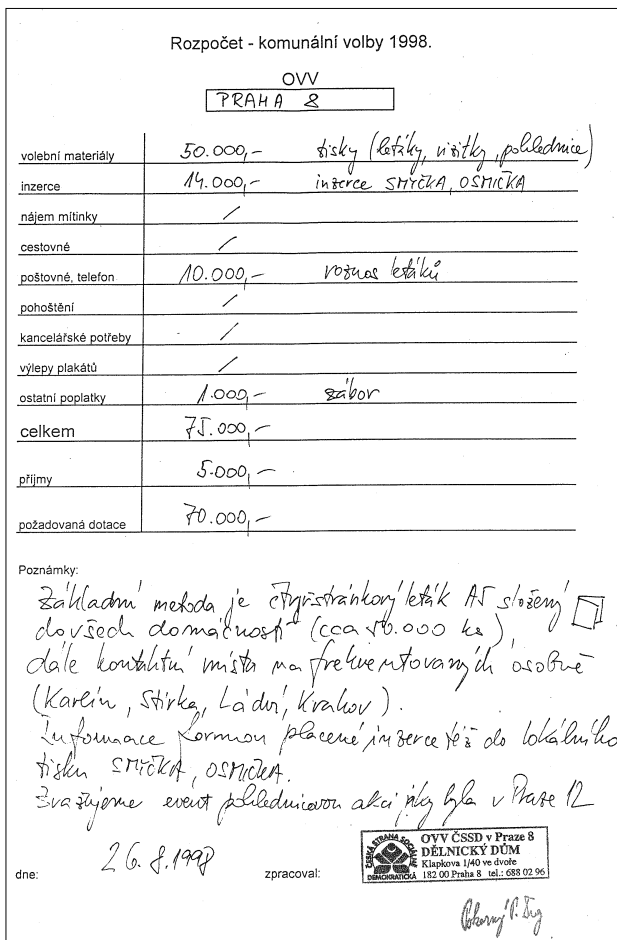 Rozpočet - komunální volby 1998.
OVV
PRAHA 8
volební materiály 50.000,- tisky (letáky, vizitky, pohlednice)
inzerce 14.000,- inzerce SMYČKA, OSMIČKA
nájem mítinky /
cestovné /
poštovné, telefon 10.000,- roznos letáků
pohoštění /
kancelářské potřeby /
výlepy plakátů /
ostatní poplatky 1.000,- zábor
celkem 75.000,-
příjmy 5.000,-
požadovaná dotace 70.000,-
Poznámky:
Základní metoda je čtyřstránkový leták A5 složený
do všech domácností (cca 50.000 ks),
dále kontaktní místa na frekventovaných osobně
(Karlín, Stírka, Ládví, Krakov).
Informace formou placené inzerce též do lokálního
tisku SMYČKA, OSMIČKA.
Zvažujeme event pohlednicovou akci jaká byla v Praze 12
dne: 26.8.1998 zpracoval:
ČESKÁ STRANA SOCIÁLNĚ DEMOKRATICKÁ
OVV ČSSD v Praze 8
DĚLNICKÝ DŮM
Klapkova 1/40 ve dvoře
182 00 Praha 8 tel.: 688 02 96
Pokorný P.